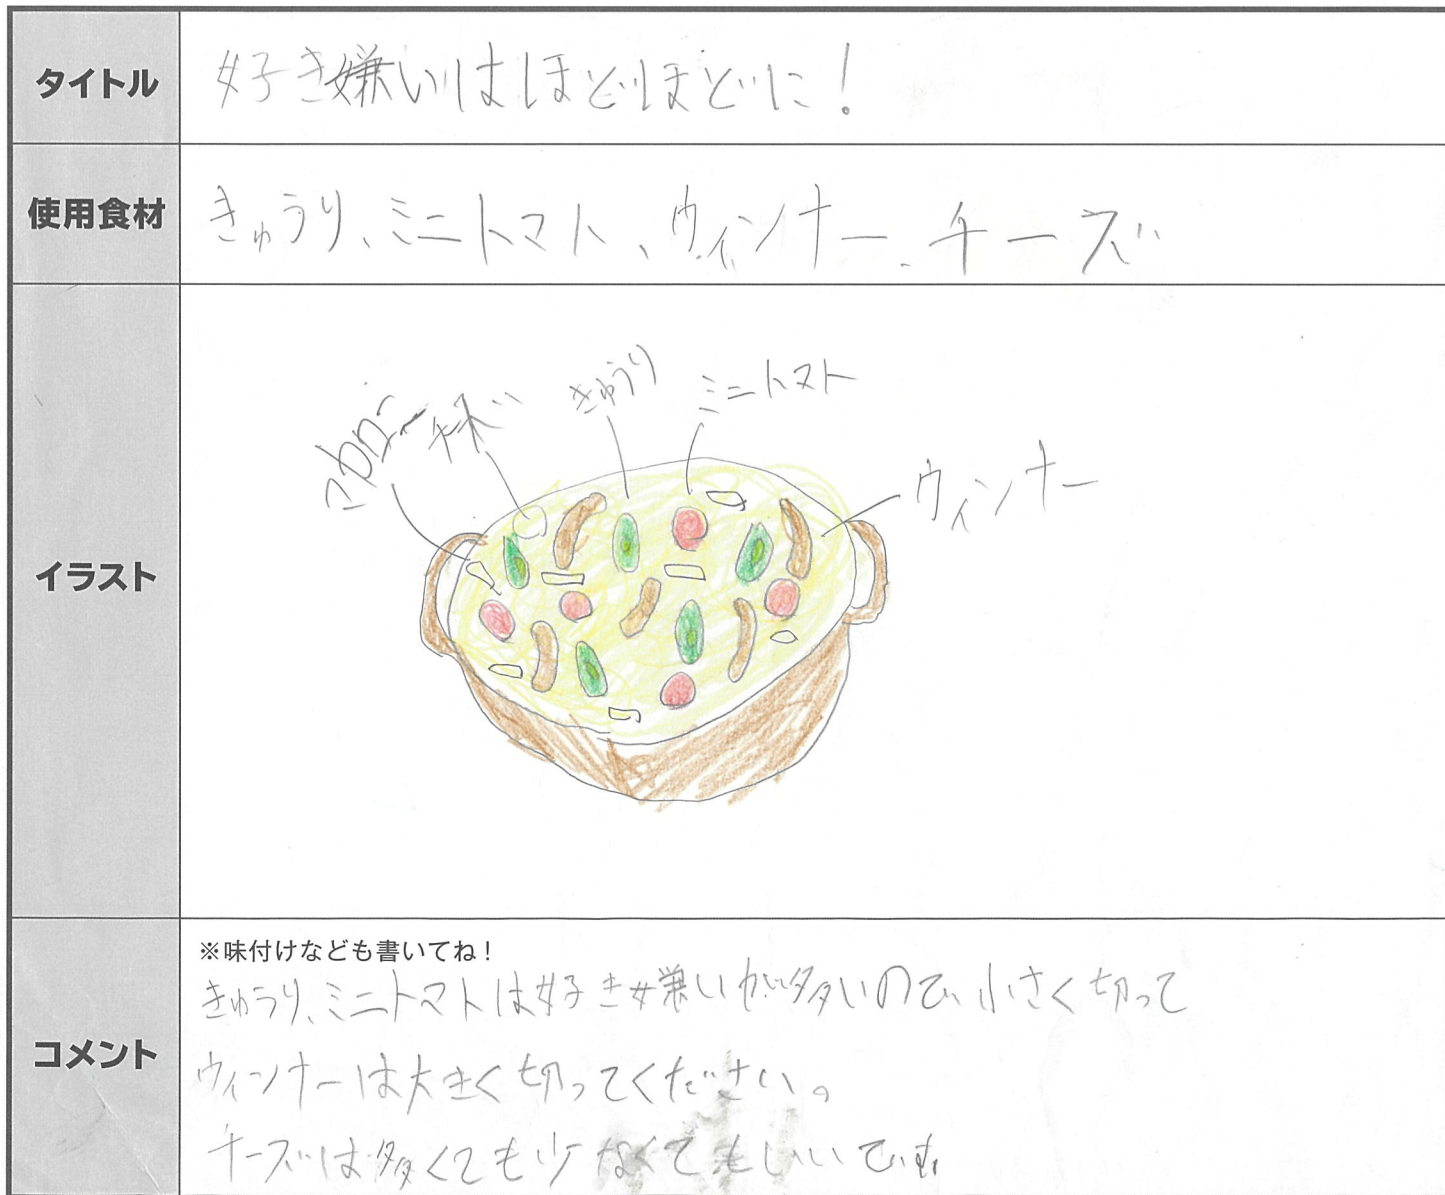 タイトル
好き嫌いはほどほどに!
使用食材
きゅうり、ミニトマト、ウィンナー、チーズ
イラスト
マカロニ
チーズ
きゅうり
ミニトマト
ウィンナー
コメント
※味付けなども書いてね!
きゅうり、ミニトマトは好き嫌いが多いので、小さく切って
ウィンナーは大きく切ってください。
チーズは多くても少なくてもいいです